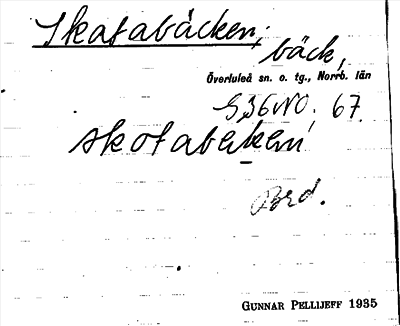 Skatabäcken, bäck,
Överluleå sn. o. tg., Norrb. län
S36NO. 67.
skotabeken
Brd.
GUNNAR PELLIJEFF 1935